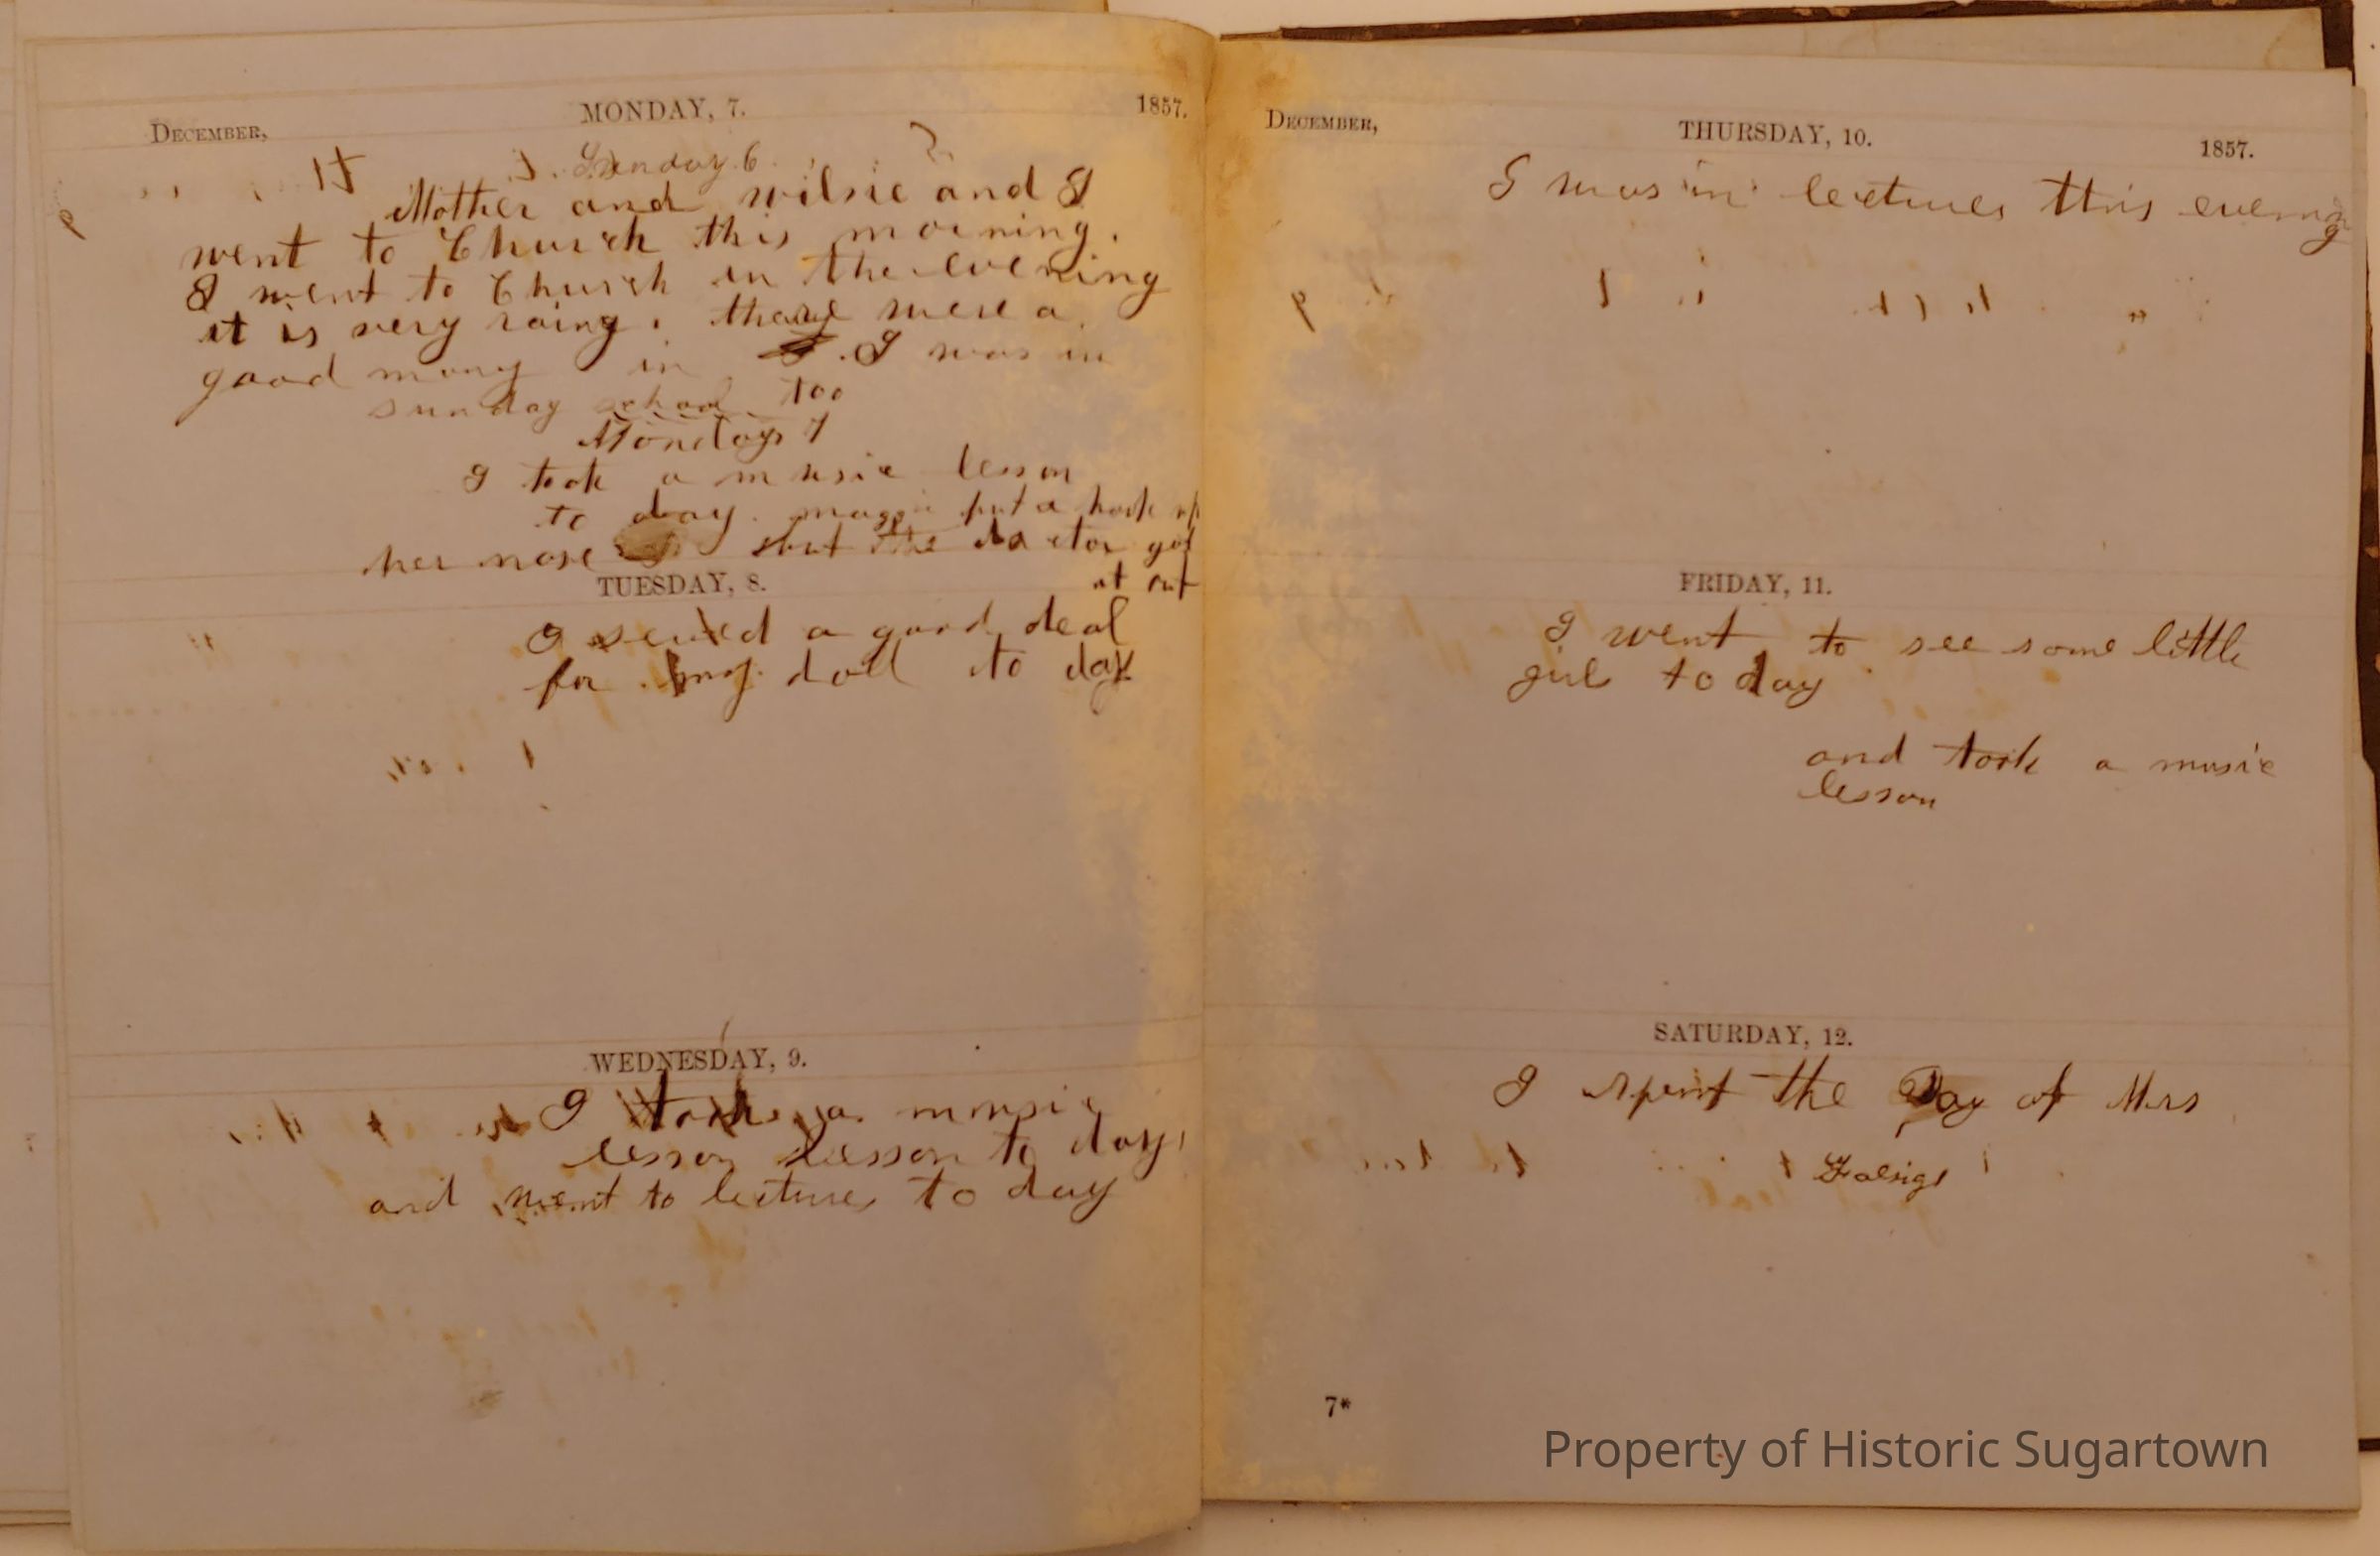 DECEMBER, MONDAY, 7. 1857.
Sunday 6
Mother and wilsie and I
went to Church this morning.
I went to Church in the evening
it is very raing. thare were a
good many in . I was in
sunday school too
Monday 7
I took a music lesson
to day. maggie put a hook up
her nose but the doctor got
it out
TUESDAY, 8.
I sewed a good deal
for my doll to day
WEDNESDAY, 9.
I took a music
lesson lesson to day
and went to lectures to day
DECEMBER, THURSDAY, 10. 1857.
I was in lectures this evening
FRIDAY, 11.
I went to see some little
girl to day
and took a music
lesson
SATURDAY, 12.
I spent the Day at Mrs
7*
Property of Historic Sugartown